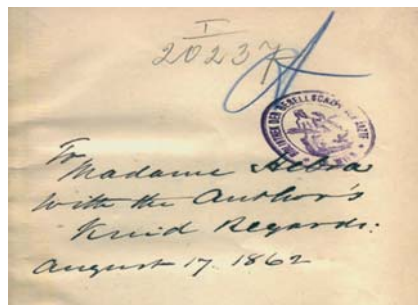 I
20237
BIBLIOTHEK DER GESELLSCHAFT DER ÄRZTE
To
Madame Hebra
with the Author's
Kind Regards:
August 17. 1862